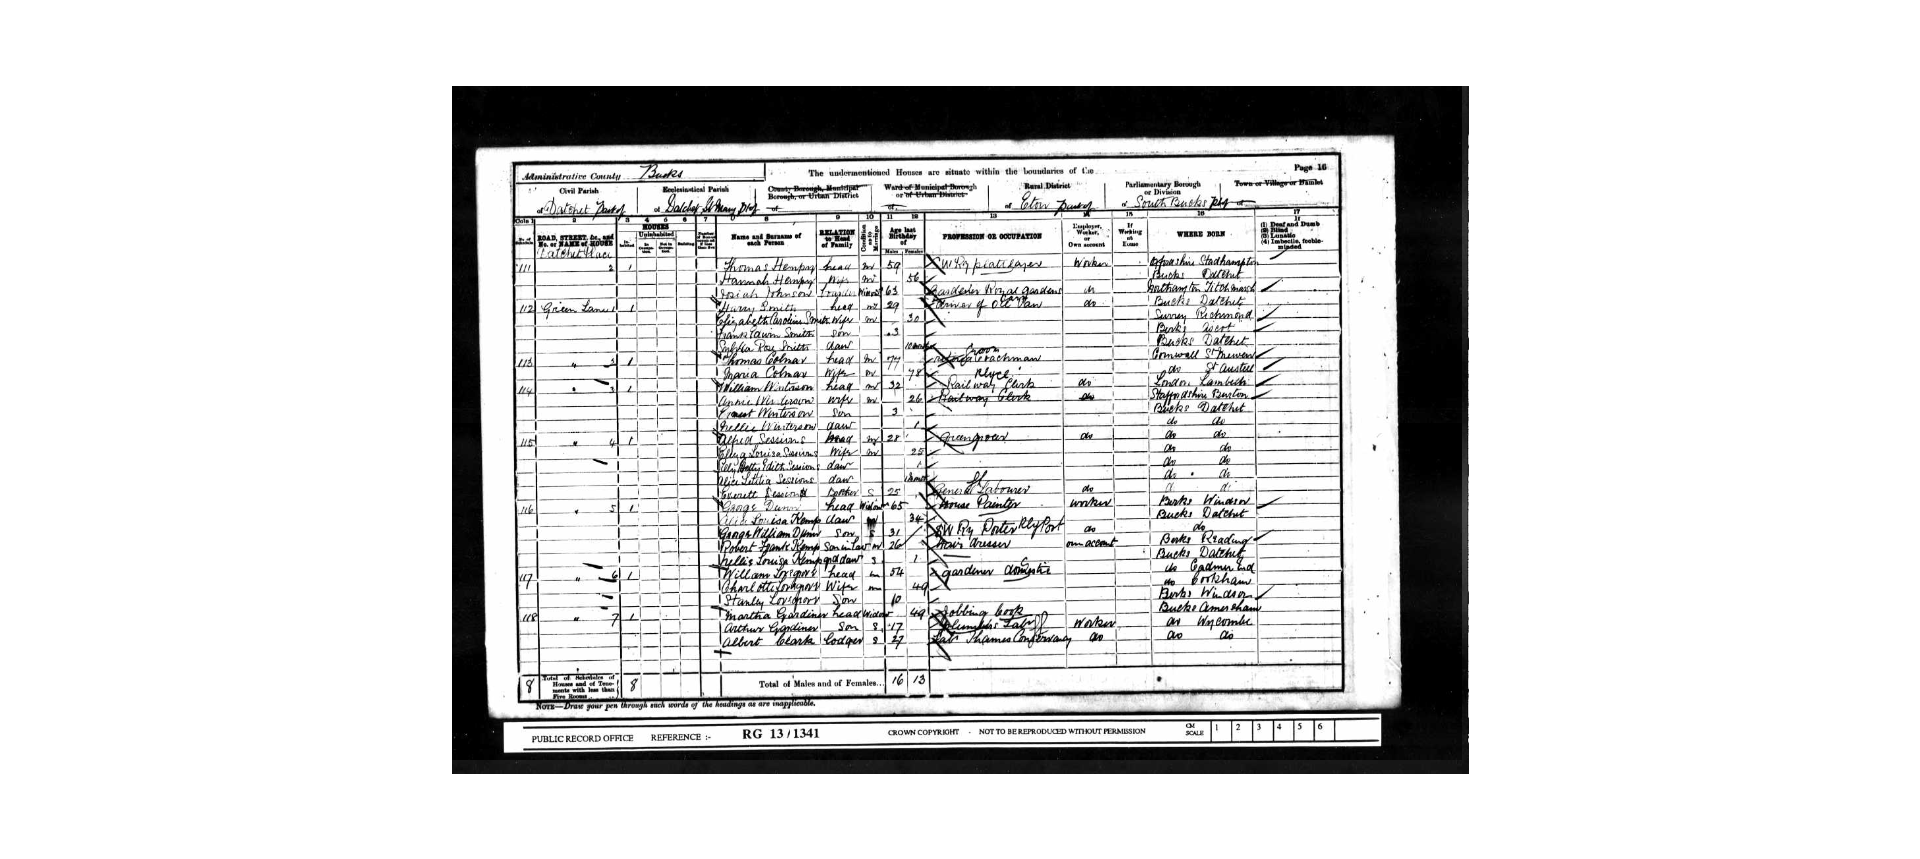 Administrative County Bucks
The undermentioned Houses are situate within the boundaries of the
Page 16
Civil Parish
Ecclesiastical Parish
County Borough, Municipal Borough, or Urban District
Ward of Municipal Borough or of Urban District
Rural District
Parliamentary Borough or Division
Town or Village or Hamlet
of Datchet Part of
of Datchet St Mary
of
of
of Eton Part of
of South Bucks
of
Cols 1 2 3 4 5 6 7 8 9 10 11 12 13 14 15 16 17
No. of Schedule
ROAD, STREET, &c., and No. or NAME of HOUSE
HOUSES
Uninhabited
Building
Name and Surname of each Person
RELATION to Head of Family
Condition as to Marriage
Age last Birthday of
Males Females
PROFESSION OR OCCUPATION
Employer, Worker, or Own account
If Working at Home
WHERE BORN
If (1) Deaf and Dumb (2) Blind (3) Lunatic (4) Imbecile, feeble-minded
Datchet Place
111 2 1 Thomas Hempry head m 59 S W Ry platelayer Worker Oxfordshire Stadhampton
Hannah Hempry Wife m 56 Bucks Datchet
Josiah Johnson Widow 63 Gardener Royal gardens Northampton Titchmarsh
112 Green Lane 1 1 Harry Smith head m 29 of Oil Van do Bucks Datchet
Elizabeth Caroline Smith Wife m 30 Surrey Richmond
Smith son 3 Berks Ascot
Rose Smith daur Bucks Datchet
113 " 2 1 Thomas Colmar head m 77 Groom Coachman Cornwall St Mewen
Maria Colmar Wife m 78 do St Austell
114 " 3 1 William Winterson head m 32 Railway Clerk do London Lambeth
Annie Winterson wife m 26 Railway Clerk do Staffordshire Burton
Ernest Winterson son 3 Bucks Datchet
Nellie Winterson daur 1 do do
115 " 4 1 Alfred Sessions head m 28 Greengrocer do do do
Louisa Sessions Wife m 25 do do
Edith Sessions daur 1 do do
Alice Letitia Sessions daur do do
Everett Sessions Brother S 25 General Labourer do
116 " 5 1 George Dunn head Widower 65 House Painter worker Berks Windsor
Louisa Kemp daur 34 Bucks Datchet
George William Dunn Son S 31 S W Ry Porter Rly Port do do
Robert Frank Kemp Son in law m 26 Hair dresser own account Berks Reading
Nellie Louisa Kemp gd daur S 1 Bucks Datchet
117 " 6 1 William Lovegrove head m 54 gardener domestic do Cadmer End
Charlotte Lovegrove Wife m 49 do Cookham
Stanley Lovegrove Son 10 Berks Windsor
118 " 7 1 Martha Gardiner head Widow 49 Jobbing Cook Bucks Amersham
Arthur Gardiner Son S 17 Plumbers Lab Worker do Wycombe
Albert Clark lodger S 27 Lab Thames Conservancy do do do
8 Total of Schedules of Houses and of Tenements with less than Five Rooms 8
Total of Males and of Females... 16 13
NOTE—Draw your pen through such words of the headings as are inapplicable.
PUBLIC RECORD OFFICE REFERENCE :- RG 13 / 1341 CROWN COPYRIGHT - NOT TO BE REPRODUCED WITHOUT PERMISSION CM SCALE 1 2 3 4 5 6